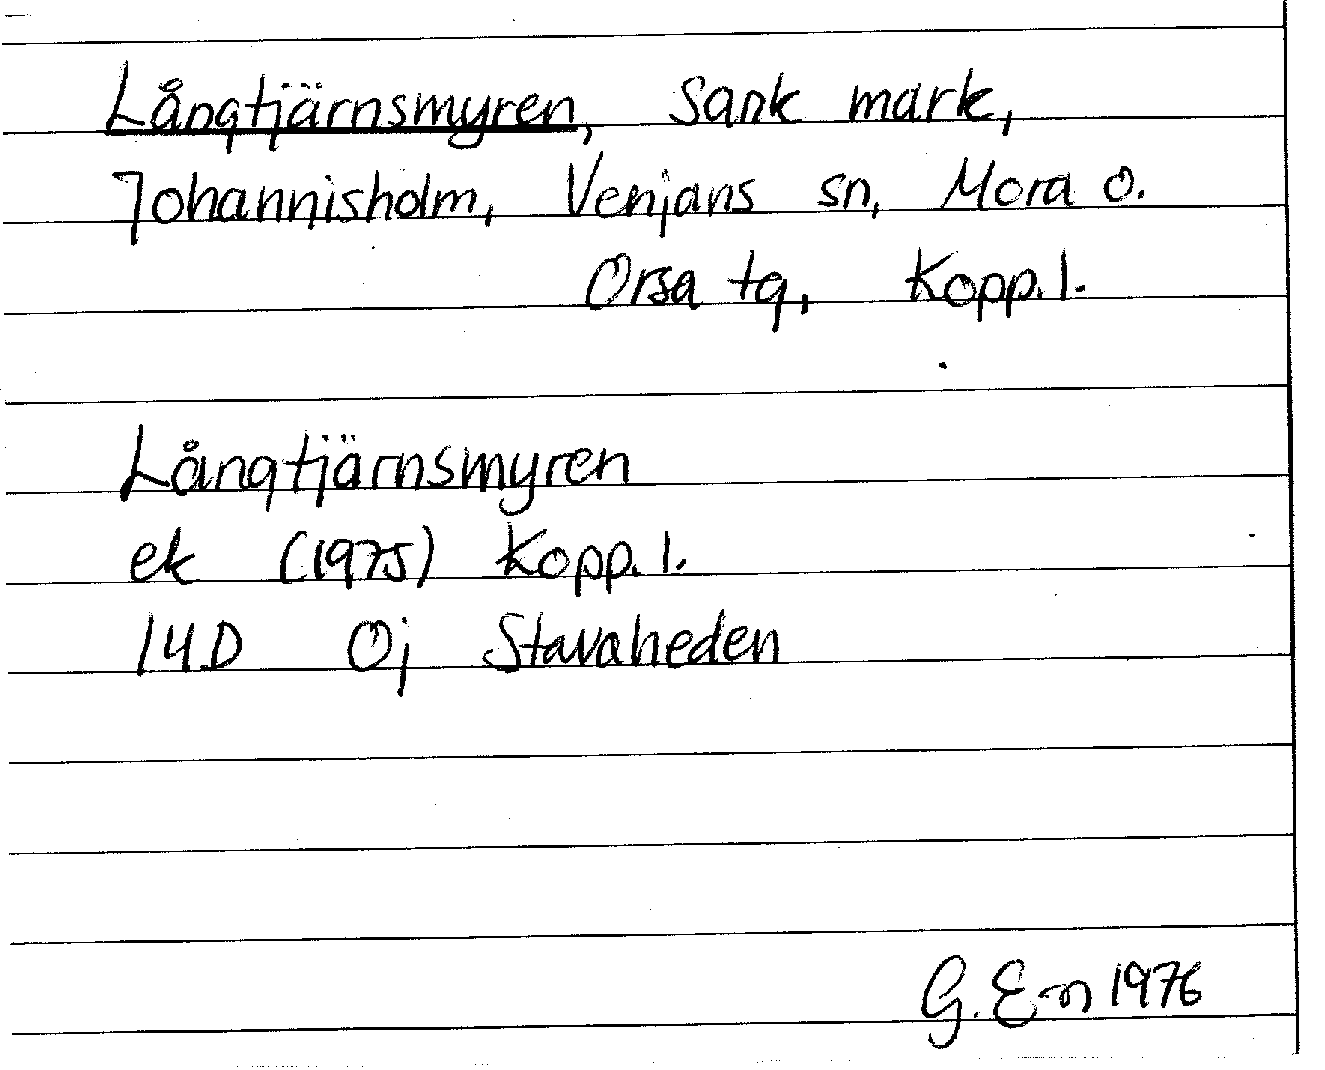 Långtjärnsmyren, Sank mark,
Johannisholm, Venjans sn, Mora o.
Orsa tg, Kopp. l.
Långtjärnsmyren
ek (1975) Kopp. l.
14D 0j Stavaheden
G. E-n 1976